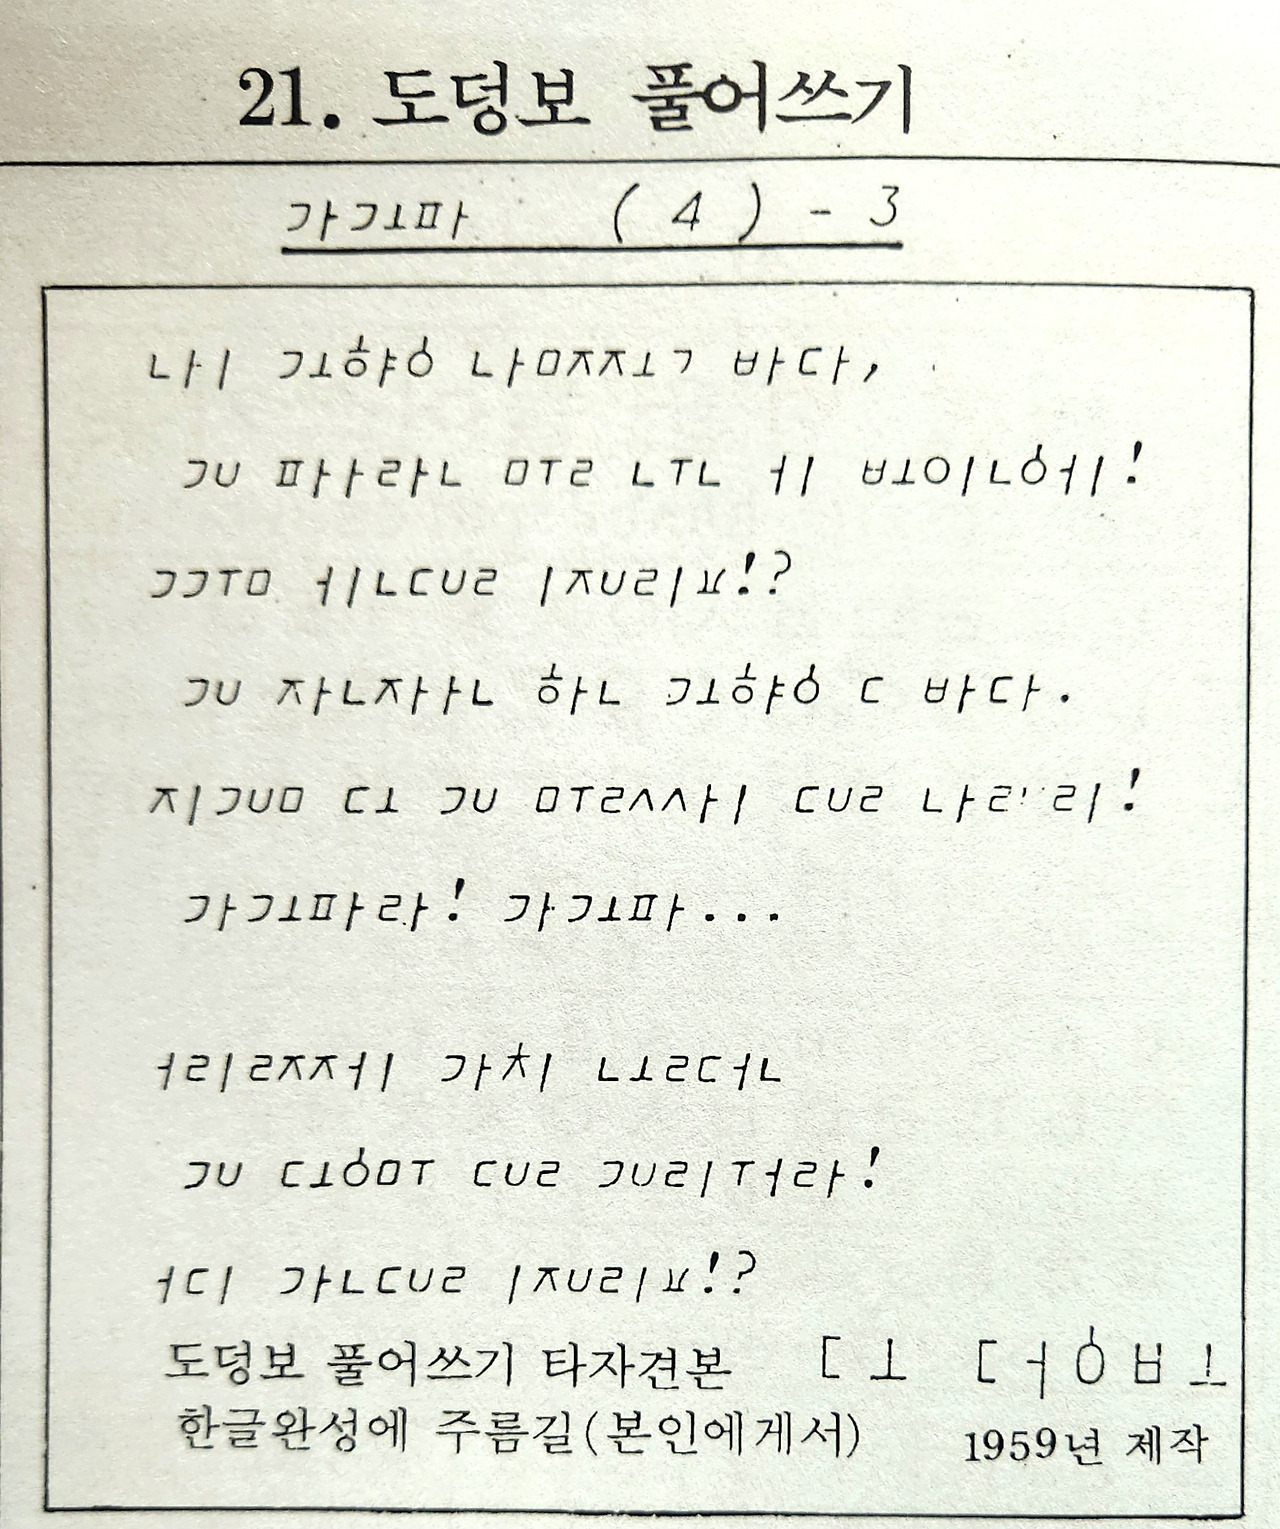 21. 도덩보 풀어쓰기
ㄱㅏㄱㅗㅍㅏ (4) - 3
ㄴㅏㅣ ㄱㅗㅎㅑㆁ ㄴㅏㅁㅈㅈㅗㄱ ㅂㅏㄷㅏ,
ㄱㅡ ㅍㅏㅏㄹㅏㄴ ㅁㅜㄹ ㄴㅜㄴ ㅓㅣ ㅂㅗㅇㅣㄴㆁㅓㅣ!
ㄱㄱㅜㅁ ㅓㅣㄴㄷㅡㄹ ㅣㅈㅡㄹㅣㅛ!?
ㄱㅡ ㅈㅏㄴㅈㅏㅏㄴ ㅎㅏㄴ ㄱㅗㅎㅑㆁ ㄷ ㅂㅏㄷㅏ.
ㅈㅣㄱㅡㅁ ㄷㅗ ㄱㅡ ㅁㅜㄹㅅㅅㅏㅣ ㄷㅡㄹ
ㄱㅏㄱㅗㅍㅏㄹㅏ! ㄱㅏㄱㅗㅍㅏ...
ㅓㄹㅣㄹㅈㅈㅓㅣ ㄱㅏㅊㅣ ㄴㅗㄹㄷㅓㄴ
ㄱㅡ ㄷㅗㆁㅁㅜ ㄷㅡㄹ ㄱㅡㄹㅣㅜㅓㄹㅏ!
ㅓㄷㅣ ㄱㅏㄴㄷㅡㄹ ㅣㅈㅡㄹㅣㅛ!?
도덩보 풀어쓰기 타자견본 ㄷㅗ ㄷㅓㆁㅂㅗ
한글완성에 주름길(본인에게서) 1959년 제작